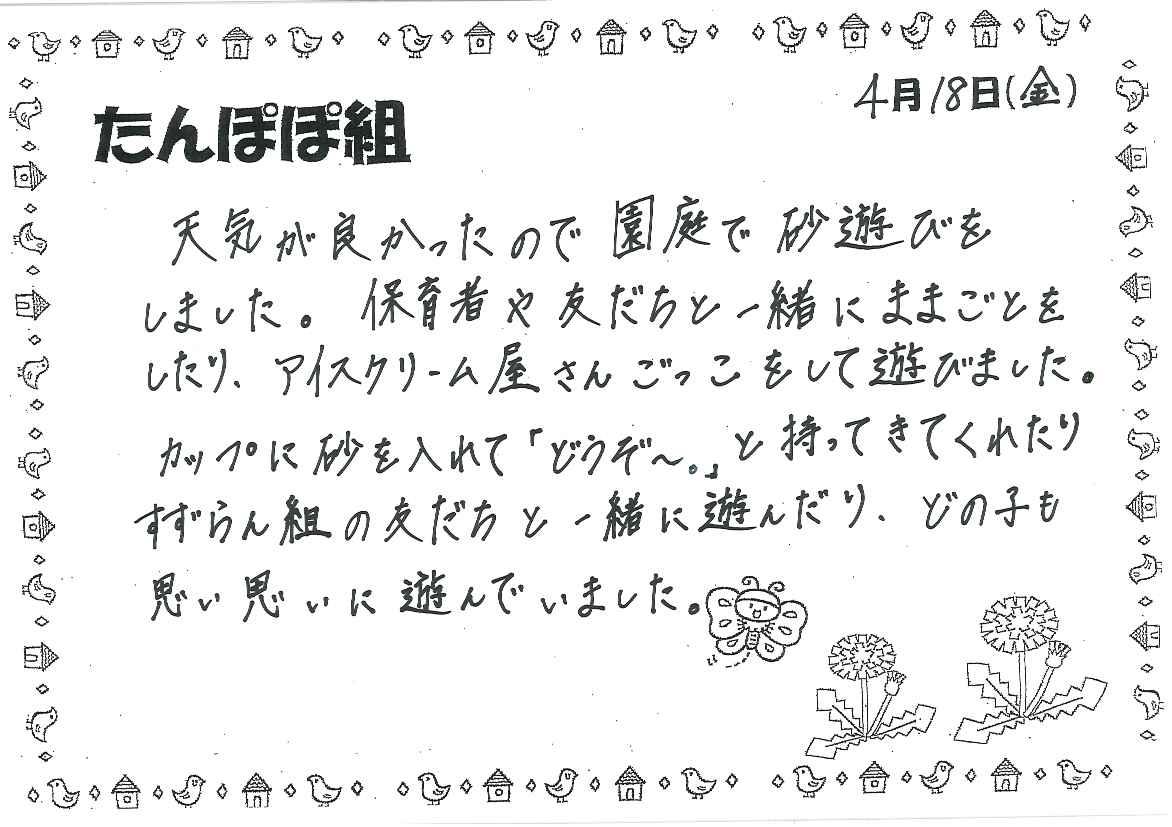 4月18日(金)
たんぽぽ組
天気が良かったので園庭で砂遊びを
しました。保育者や友だちと一緒にままごとを
したり、アイスクリーム屋さんごっこをして遊びました。
カップに砂を入れて「どうぞ〜。」と持ってきてくれたり
すずらん組の友だちと一緒に遊んだり、どの子も
思い思いに遊んでいました。